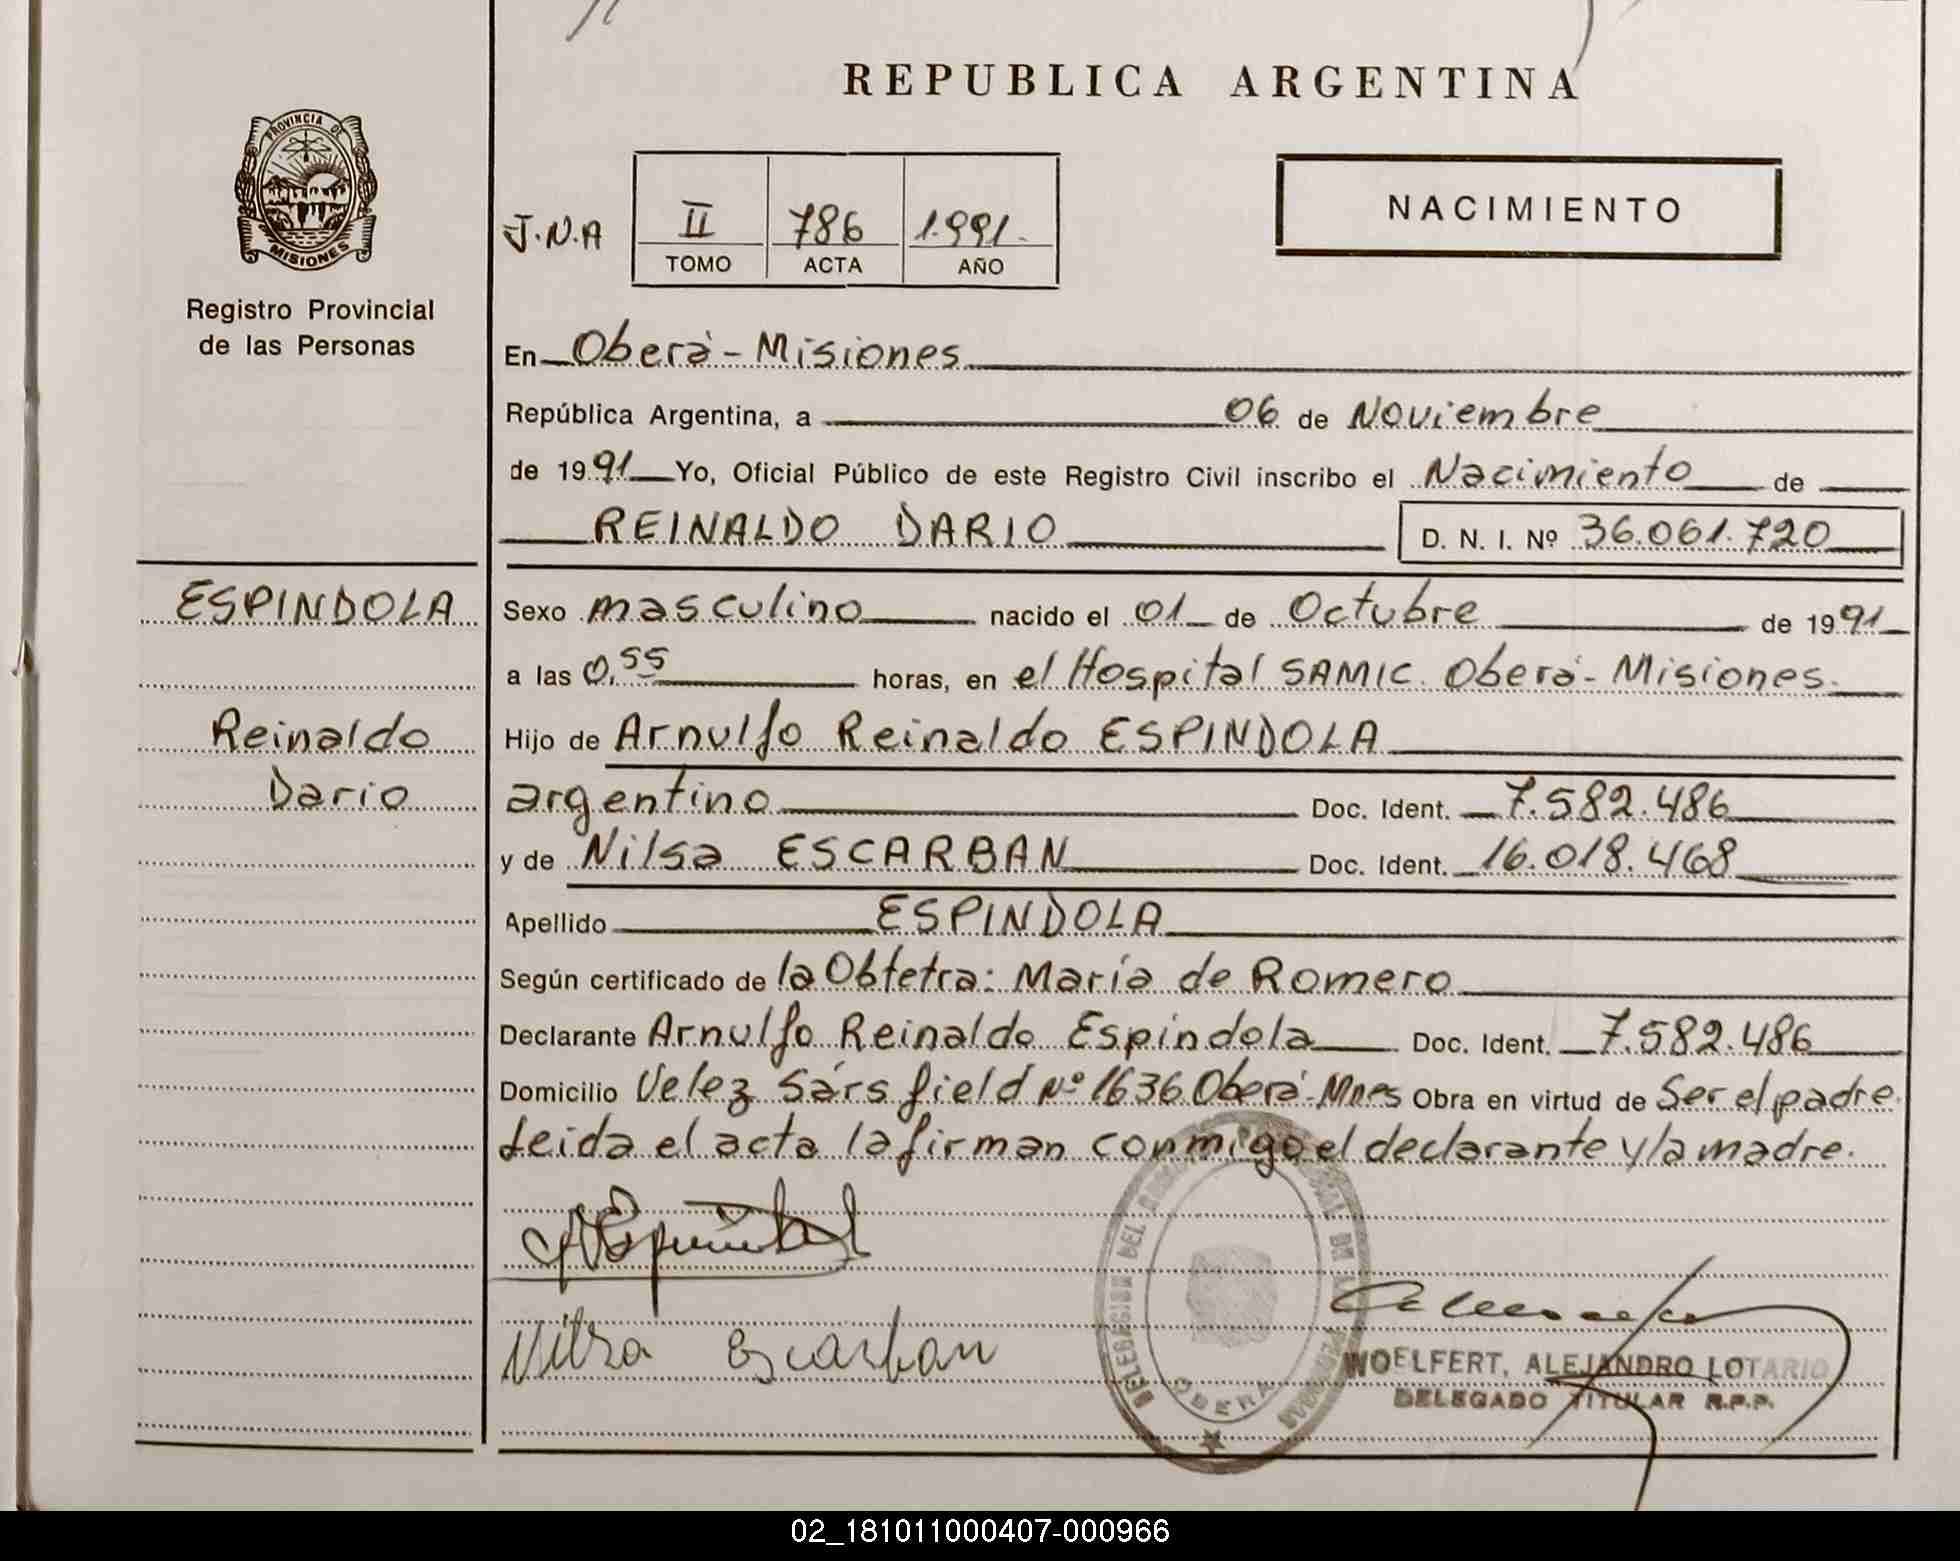 REPUBLICA ARGENTINA
PROVINCIA DE
MISIONES
Registro Provincial
de las Personas
J.N.A
II 786 1.991.
TOMO ACTA AÑO
NACIMIENTO
En Oberá - Misiones
República Argentina, a 06 de Noviembre
de 1991 Yo, Oficial Público de este Registro Civil inscribo el Nacimiento de
REINALDO DARIO D. N. I. Nº 36.061.720
ESPINDOLA
Reinaldo
Dario
Sexo masculino nacido el 01 de Octubre de 1991
a las 0,55 horas, en el Hospital SAMIC. Oberá - Misiones.
Hijo de Arnulfo Reinaldo ESPINDOLA
argentino Doc. Ident. 7.582.486
y de Nilsa ESCARBAN Doc. Ident. 16.018.468
Apellido ESPINDOLA
Según certificado de la Obtetra: María de Romero
Declarante Arnulfo Reinaldo Espindola Doc. Ident. 7.582.486
Domicilio Velez Sársfield Nº 1636 Oberá - Mnes Obra en virtud de Ser el padre
Leida el acta la firman conmigo el declarante y la madre.
Nilsa Escarban
DELEGACION DEL
OBERA
WOELFERT, ALEJANDRO LOTARIO
DELEGADO TITULAR R.P.P.
02_181011000407-000966